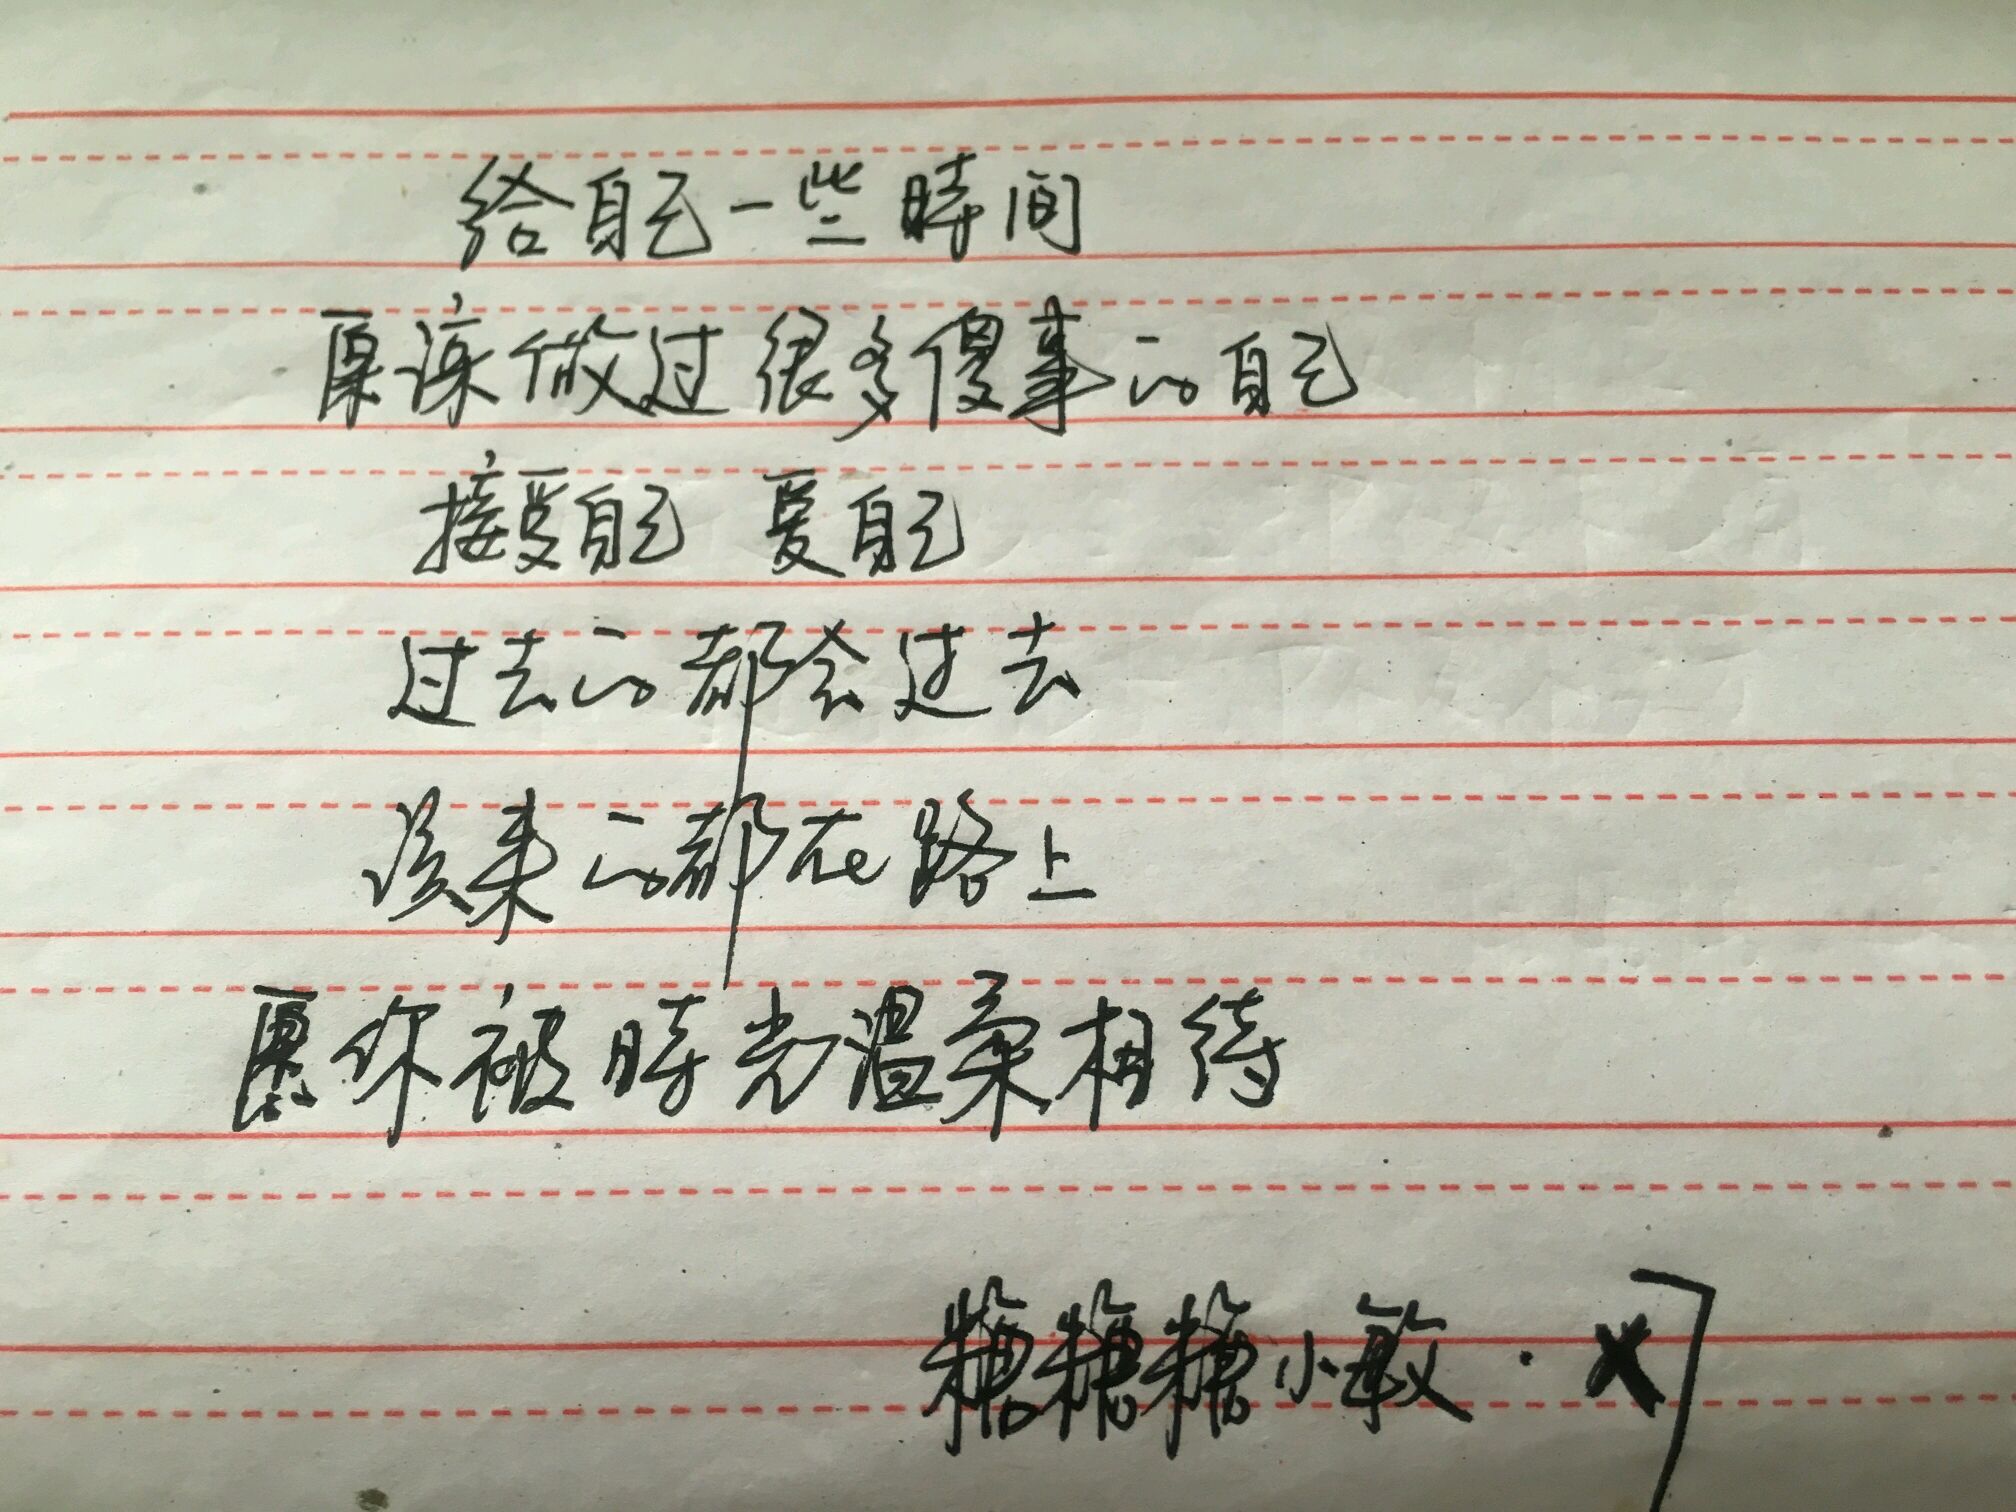 给自己一些時间
原谅做过很多傻事的自己
接受自己 爱自己
过去的都会过去
该来的都在路上
愿你被時光温柔相待
糖糖糖小敏.